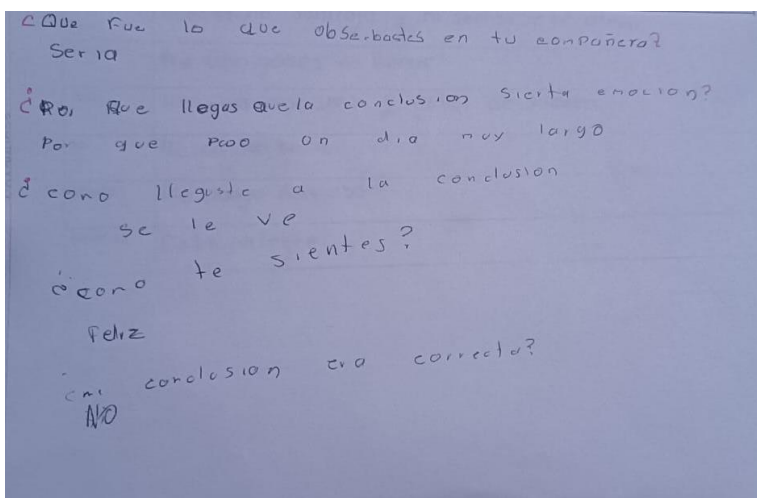 ¿Que Fue lo que obserbastes en tu compañera?
Seria
¿Por que llegas a la conclusion sierta emocion?
Por que on dia muy largo
¿como lleguste a la conclusion
se le ve
¿como te sientes?
Feliz
¿mi conclusion era correcta?
NO